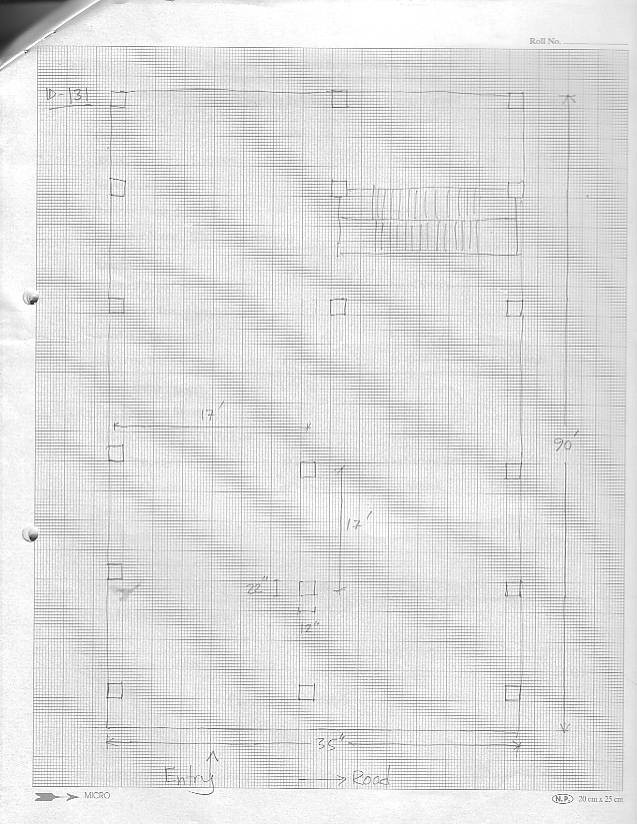 Roll No.
D-131
17'
90'
17'
22"
12"
35"
Entry
Road
MICRO
N.P. 20 cm x 25 cm